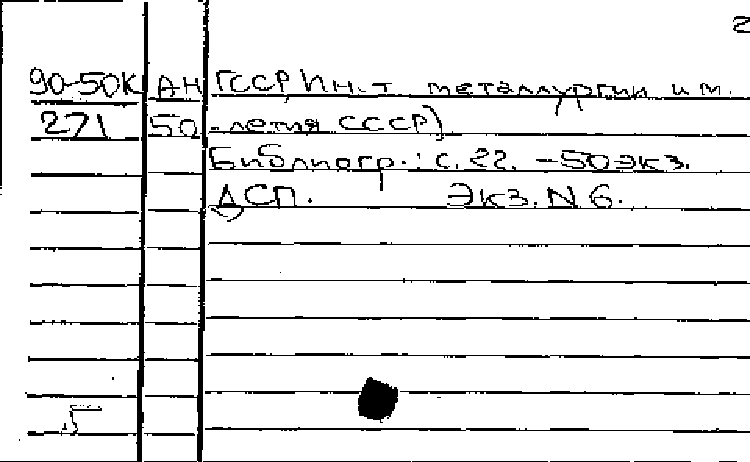 2
90-50К АН ГССР Ин-т металлургии им.
271 50-летия СССР)
Библиогр.: с. 22. - 50 экз.
ДСП. Экз. N 6.